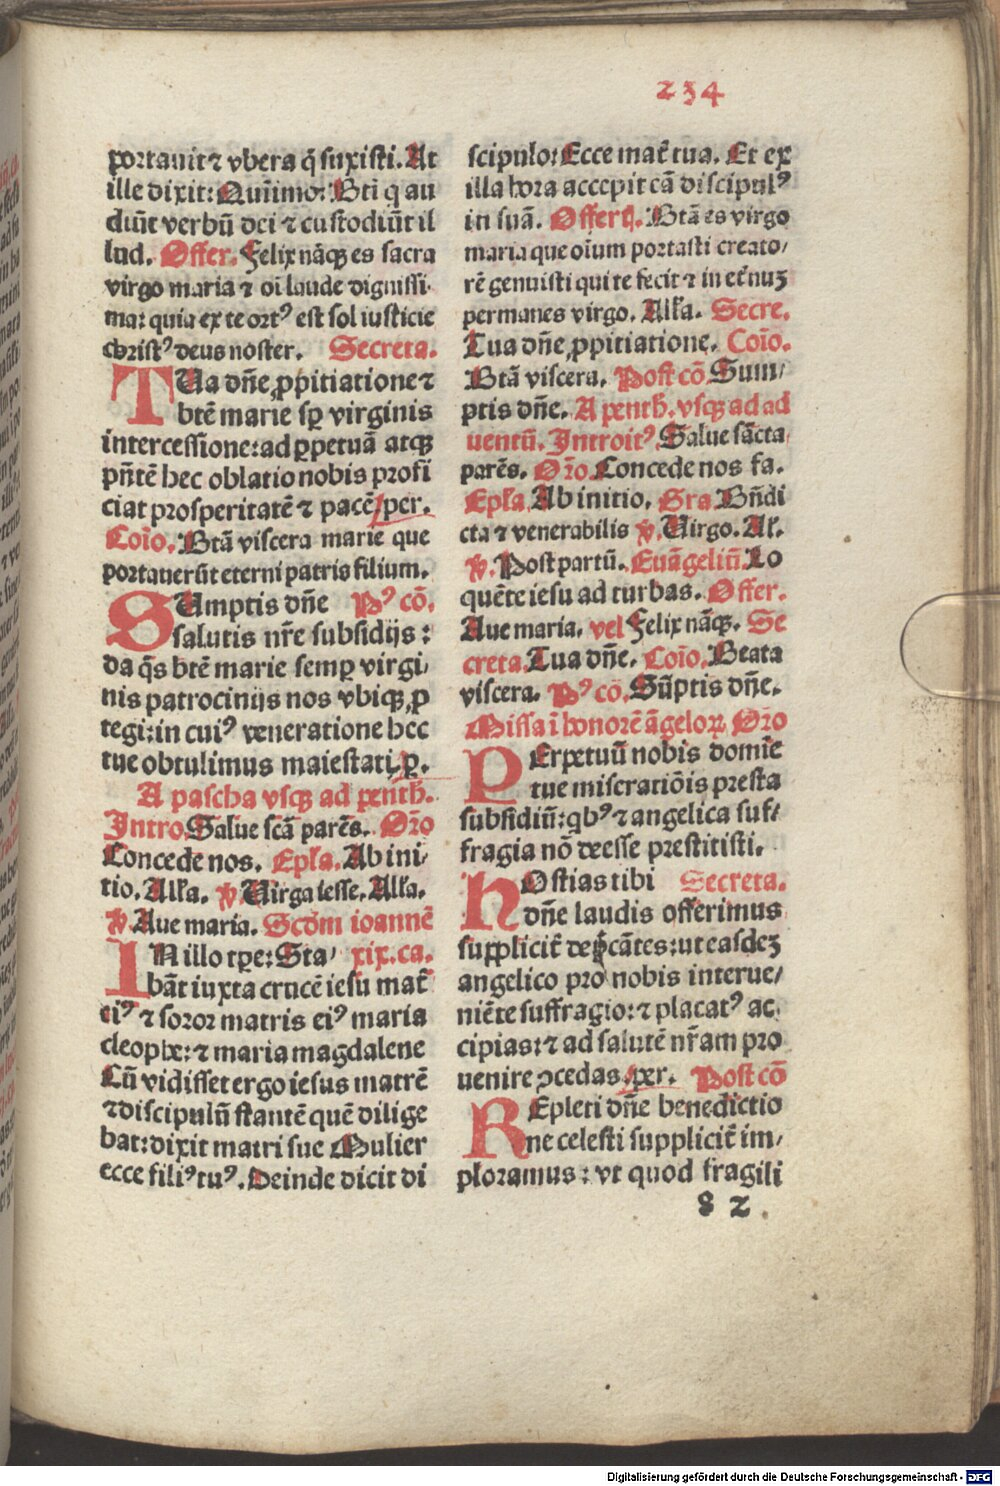 234
portauit ⁊ vbera q̄ suxisti. At
ille dixit: Quīimo: Bt̄i q au
diūt verbū dei ⁊ custodiūt il
lud. Offer. Felix nāqꝫ es sacra
virgo maria ⁊ oī laude dignissi
ma: quia ex te ortꝰ est sol iusticie
christꝰ deus noster. Secreta.
TUa dn̄e ꝓpitiatione ⁊
bt̄e marie sꝑ virginis
intercessione: ad ꝑpetuā atqꝫ
pn̄tē hec oblatio nobis profi
ciat prosperitatē ⁊ pacē. per.
Coīo. Bt̄ā viscera marie que
portauerūt eterni patris filium.
SUmptis dn̄e Pꝰ cō.
salutis nr̄e subsidijs:
da q̄s bt̄e marie semꝑ virgi/
nis patrocinijs nos vbiqꝫ ꝓ
tegi: in cuiꝰ veneratione hec
tue obtulimus maiestati. ꝑ.
A pascha vsqꝫ ad penth.
Intro. Salue scā parēs. Or̄o
Concede nos. Epl̄a. Ab ini/
tio. All̄a. ℣. Uirga iesse. All̄a.
℣. Aue maria. Scd̄m ioannē
IN illo tꝑe: Sta/ xix. ca.
bāt iuxta crucē iesu mat̄
eiꝰ ⁊ soror matris eiꝰ maria
cleophe: ⁊ maria magdalene
Cū vidisset ergo iesus matrē
⁊ discipulū stantē quē dilige
bat: dixit matri sue Mulier
ecce filiꝰ tuꝰ. Deinde dicit di
scipulo: Ecce mat̄ tua. Et ex
illa hora accepit eā discipulꝰ
in suā. Offert̄. Bt̄ā es virgo
maria que oīum portasti creato/
rē genuisti qui te fecit ⁊ in et̄nuꝫ
permanes virgo. All̄a. Secre.
Tua dn̄e ꝓpitiatione. Coīo.
Bt̄ā viscera. Post cō. Sum/
ptis dn̄e. A penth. vsqꝫ ad ad
uentū. Introitꝰ. Salue sācta
parēs. Or̄o. Concede nos fa.
Epl̄a. Ab initio. Gra. Bn̄di
cta ⁊ venerabilis ℣. Uirgo. Al̄.
℣. Post partū. Euāgeliū. Lo
quēte iesu ad turbas. Offer.
Aue maria. vel Felix nāqꝫ. Se
creta. Tua dn̄e. Coīo. Beata
viscera. Pꝰ cō. Sūptis dn̄e.
Missa ī honorē āgeloꝝ Or̄o
PErpetuū nobis domīe
tue miseratiōis presta
subsidiū: qbꝰ ⁊ angelica suf/
fragia nō deesse prestitisti.
HOstias tibi Secreta.
dn̄e laudis offerimus
suꝑplicit̄ dep̄cātes: ut easdeꝫ
angelico pro nobis interue/
niēte suffragio: ⁊ placatꝰ ac
cipias: ⁊ ad salutē nr̄am pro
uenire ꝯcedas. per. Post cō
REpleti dn̄e benedictio
ne celesti supplicit̄ im/
ploramus: vt quod fragili
8 2
Digitalisierung gefördert durch die Deutsche Forschungsgemeinschaft - DFG